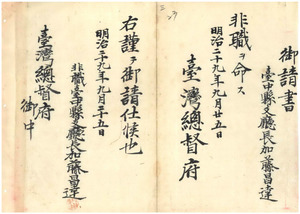 御請書
臺中縣支廳長加藤昌達
非職ヲ命ス
明治二十九年九月廿五日
臺灣總督府
右謹テ御請仕候也
明治二十九年九月二十五日
非職臺中縣支廳長加藤昌達
臺灣總督府
御中